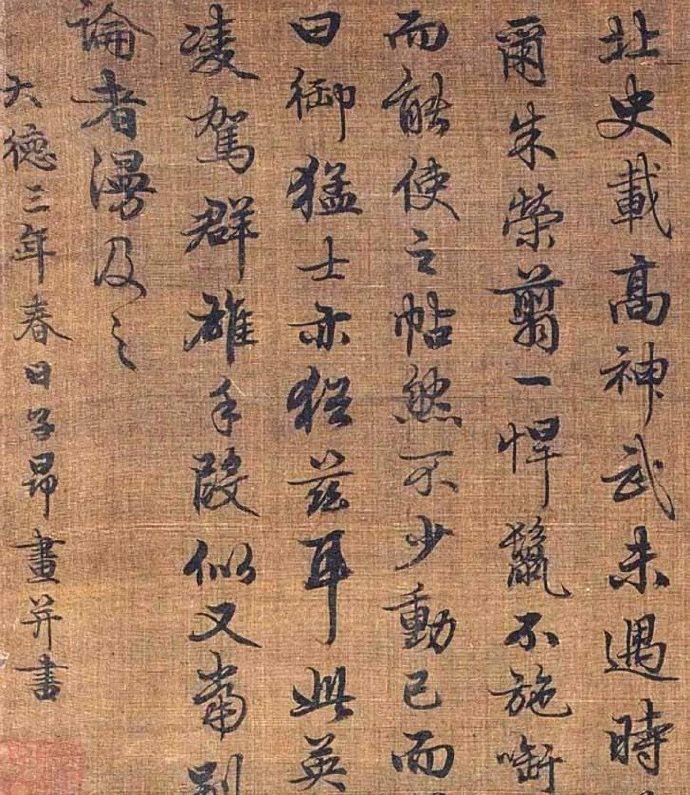 北史載高神武未遇時
爾朱榮翦一悍鬣不施
而能使之帖然不少動已而
曰御猛士亦猶茲耳此英
凌駕群雄手段似又當別
論者漫及之
大德三年春日子昂畫并書